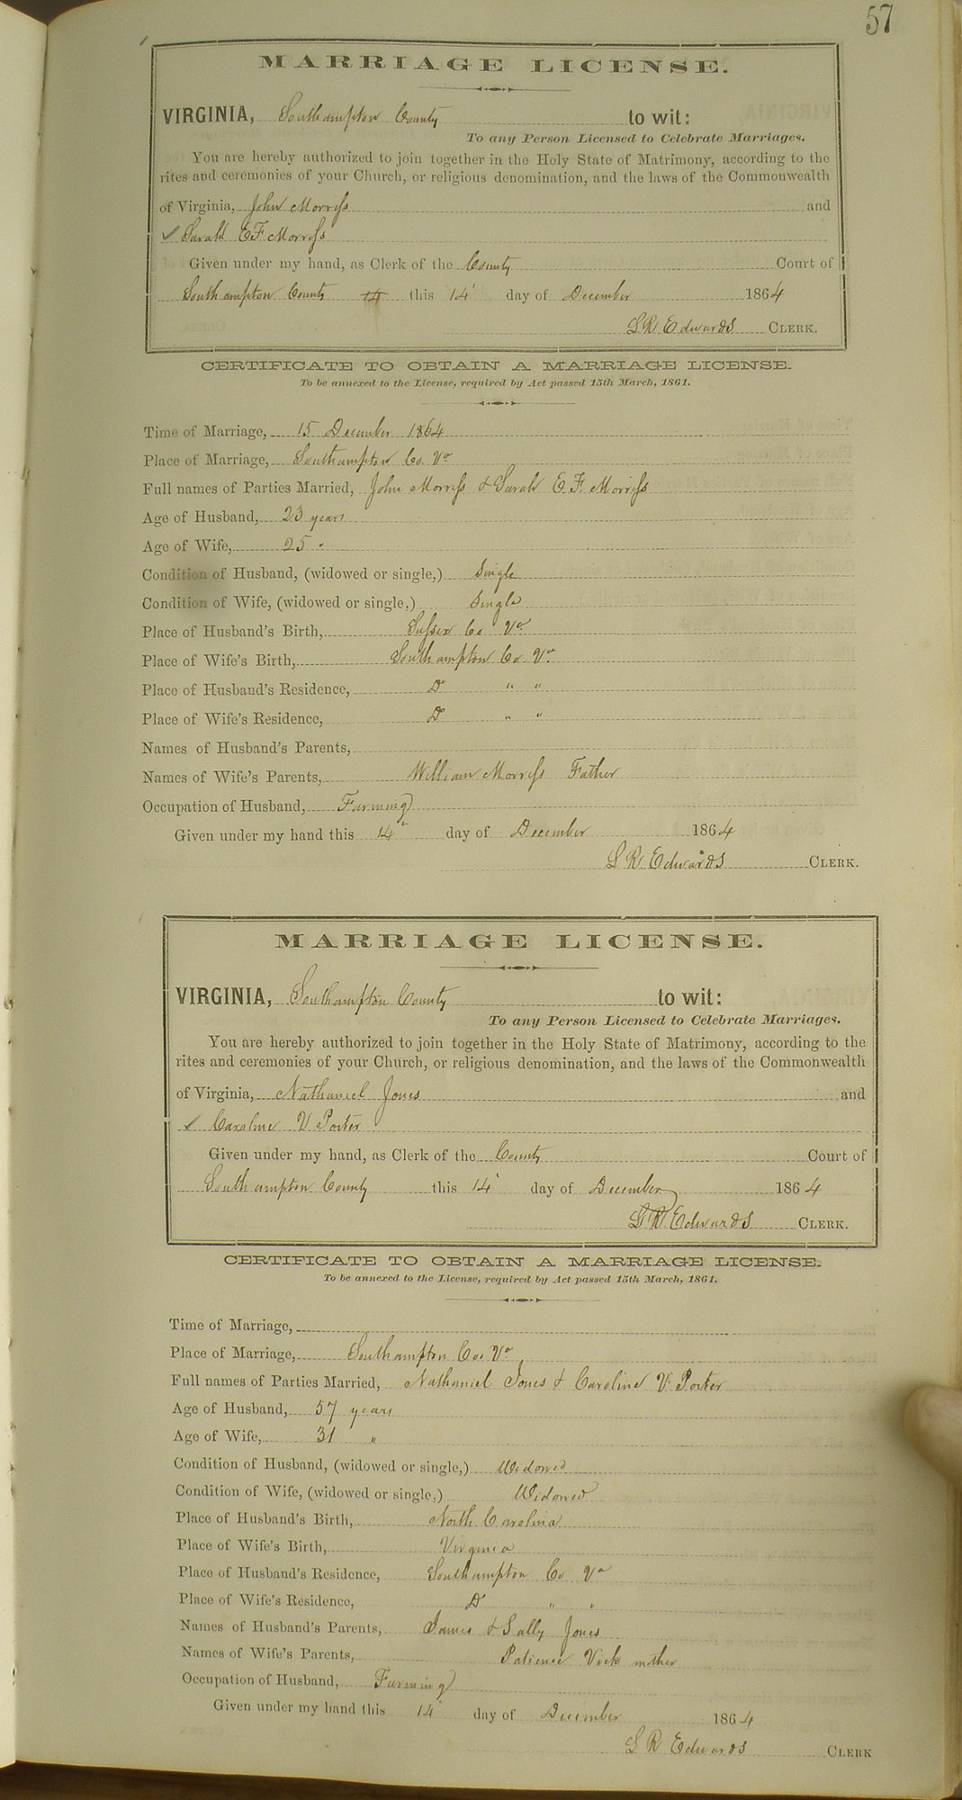 57
MARRIAGE LICENSE.
VIRGINIA, Southampton County to wit:
To any Person Licensed to Celebrate Marriages.
You are hereby authorized to join together in the Holy State of Matrimony, according to the
rites and ceremonies of your Church, or religious denomination, and the laws of the Commonwealth
of Virginia, John Morriss and
✓ Sarah E F Morriss
Given under my hand, as Clerk of the County Court of
Southampton County 14 this 14 day of December 1864
L R Edwards CLERK.
CERTIFICATE TO OBTAIN A MARRIAGE LICENSE.
To be annexed to the License, required by Act passed 15th March, 1861.
Time of Marriage, 15 December 1864
Place of Marriage, Southampton Co. Va
Full names of Parties Married, John Morriss & Sarah E. F. Morriss
Age of Husband, 23 years
Age of Wife, 25 "
Condition of Husband, (widowed or single,) Single
Condition of Wife, (widowed or single,) Single
Place of Husband's Birth, Sussex Co Va
Place of Wife's Birth, Southampton Co Va
Place of Husband's Residence, Do " "
Place of Wife's Residence, Do " "
Names of Husband's Parents,
Names of Wife's Parents, William Morriss Father
Occupation of Husband, Farming
Given under my hand this 14 day of December 1864
L R Edwards CLERK.
MARRIAGE LICENSE.
VIRGINIA, Southampton County to wit:
To any Person Licensed to Celebrate Marriages.
You are hereby authorized to join together in the Holy State of Matrimony, according to the
rites and ceremonies of your Church, or religious denomination, and the laws of the Commonwealth
of Virginia, Nathaniel Jones and
✓ Caroline V. Porter
Given under my hand, as Clerk of the County Court of
Southampton County this 14 day of December 1864
L R Edwards CLERK.
CERTIFICATE TO OBTAIN A MARRIAGE LICENSE.
To be annexed to the License, required by Act passed 15th March, 1861.
Time of Marriage,
Place of Marriage, Southampton Co. Va
Full names of Parties Married, Nathaniel Jones & Caroline V. Porter
Age of Husband, 57 years
Age of Wife, 31 "
Condition of Husband, (widowed or single,) Widowed
Condition of Wife, (widowed or single,) Widowed
Place of Husband's Birth, North Carolina
Place of Wife's Birth, Virginia
Place of Husband's Residence, Southampton Co Va
Place of Wife's Residence, Do " "
Names of Husband's Parents, James & Sally Jones
Names of Wife's Parents, Patience Vick mother
Occupation of Husband, Farming
Given under my hand this 14 day of December 1864
L R Edwards CLERK